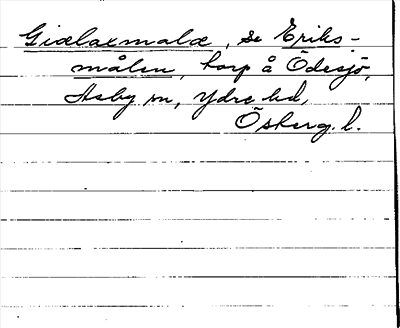 Giælaxmalæ, se Eriks-
målen, torp å Ödesjö,
Asby sn, Ydre hd,
Österg. l.